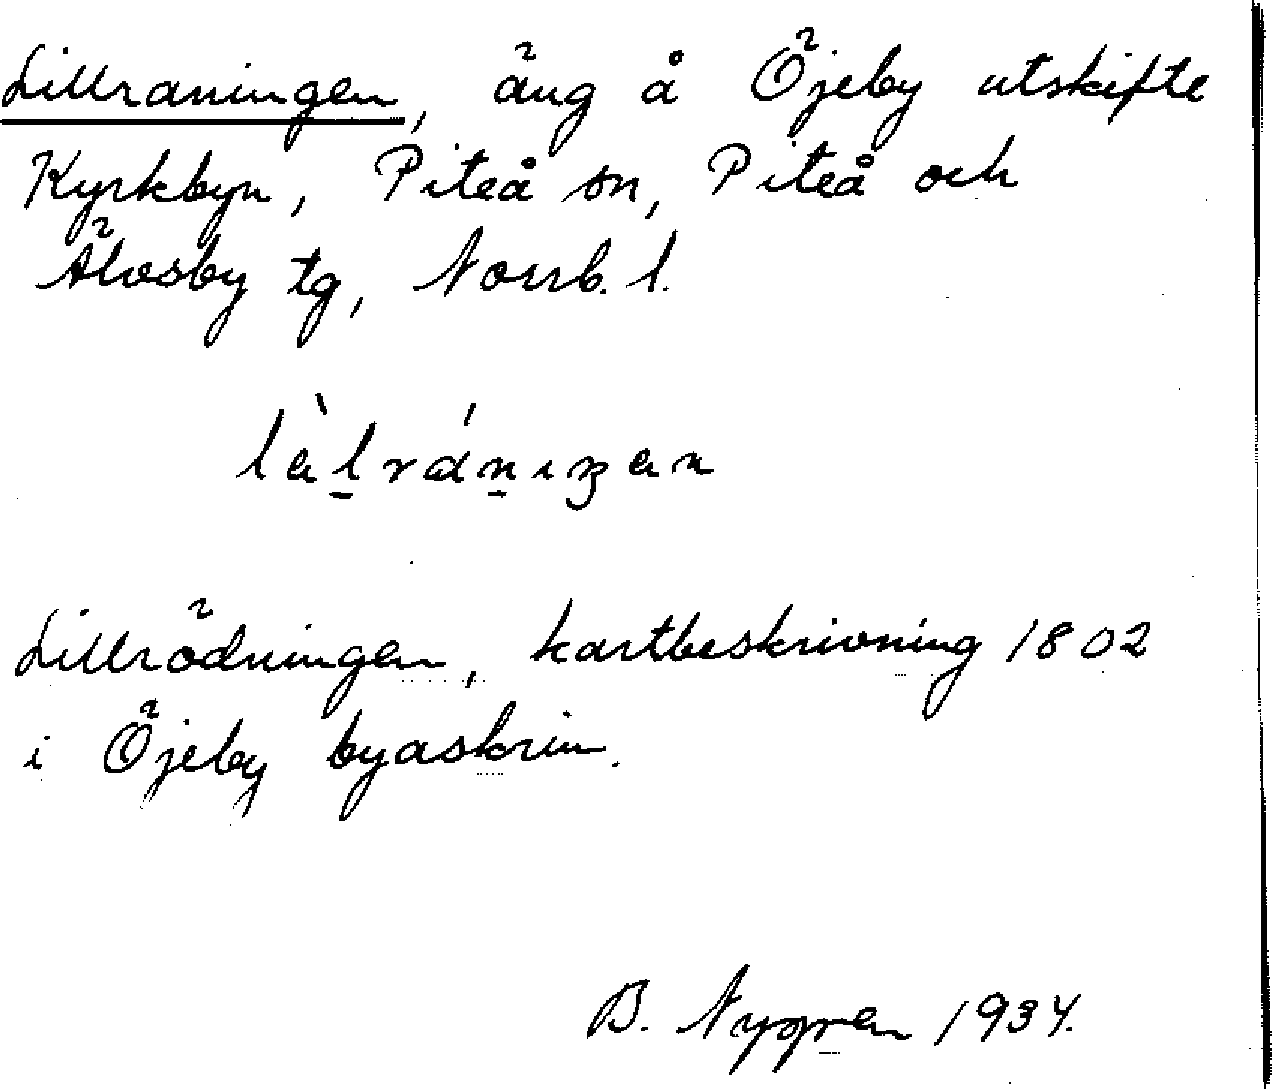 Lillraningen, äng å Öjeby utskifte
Kyrkbyn, Piteå sn, Piteå och
Älvsby tg, Norrb. l.
Lillrödningen, kartbeskrivning 1802
i Öjeby byaskrin.
B. Nygren 1934.